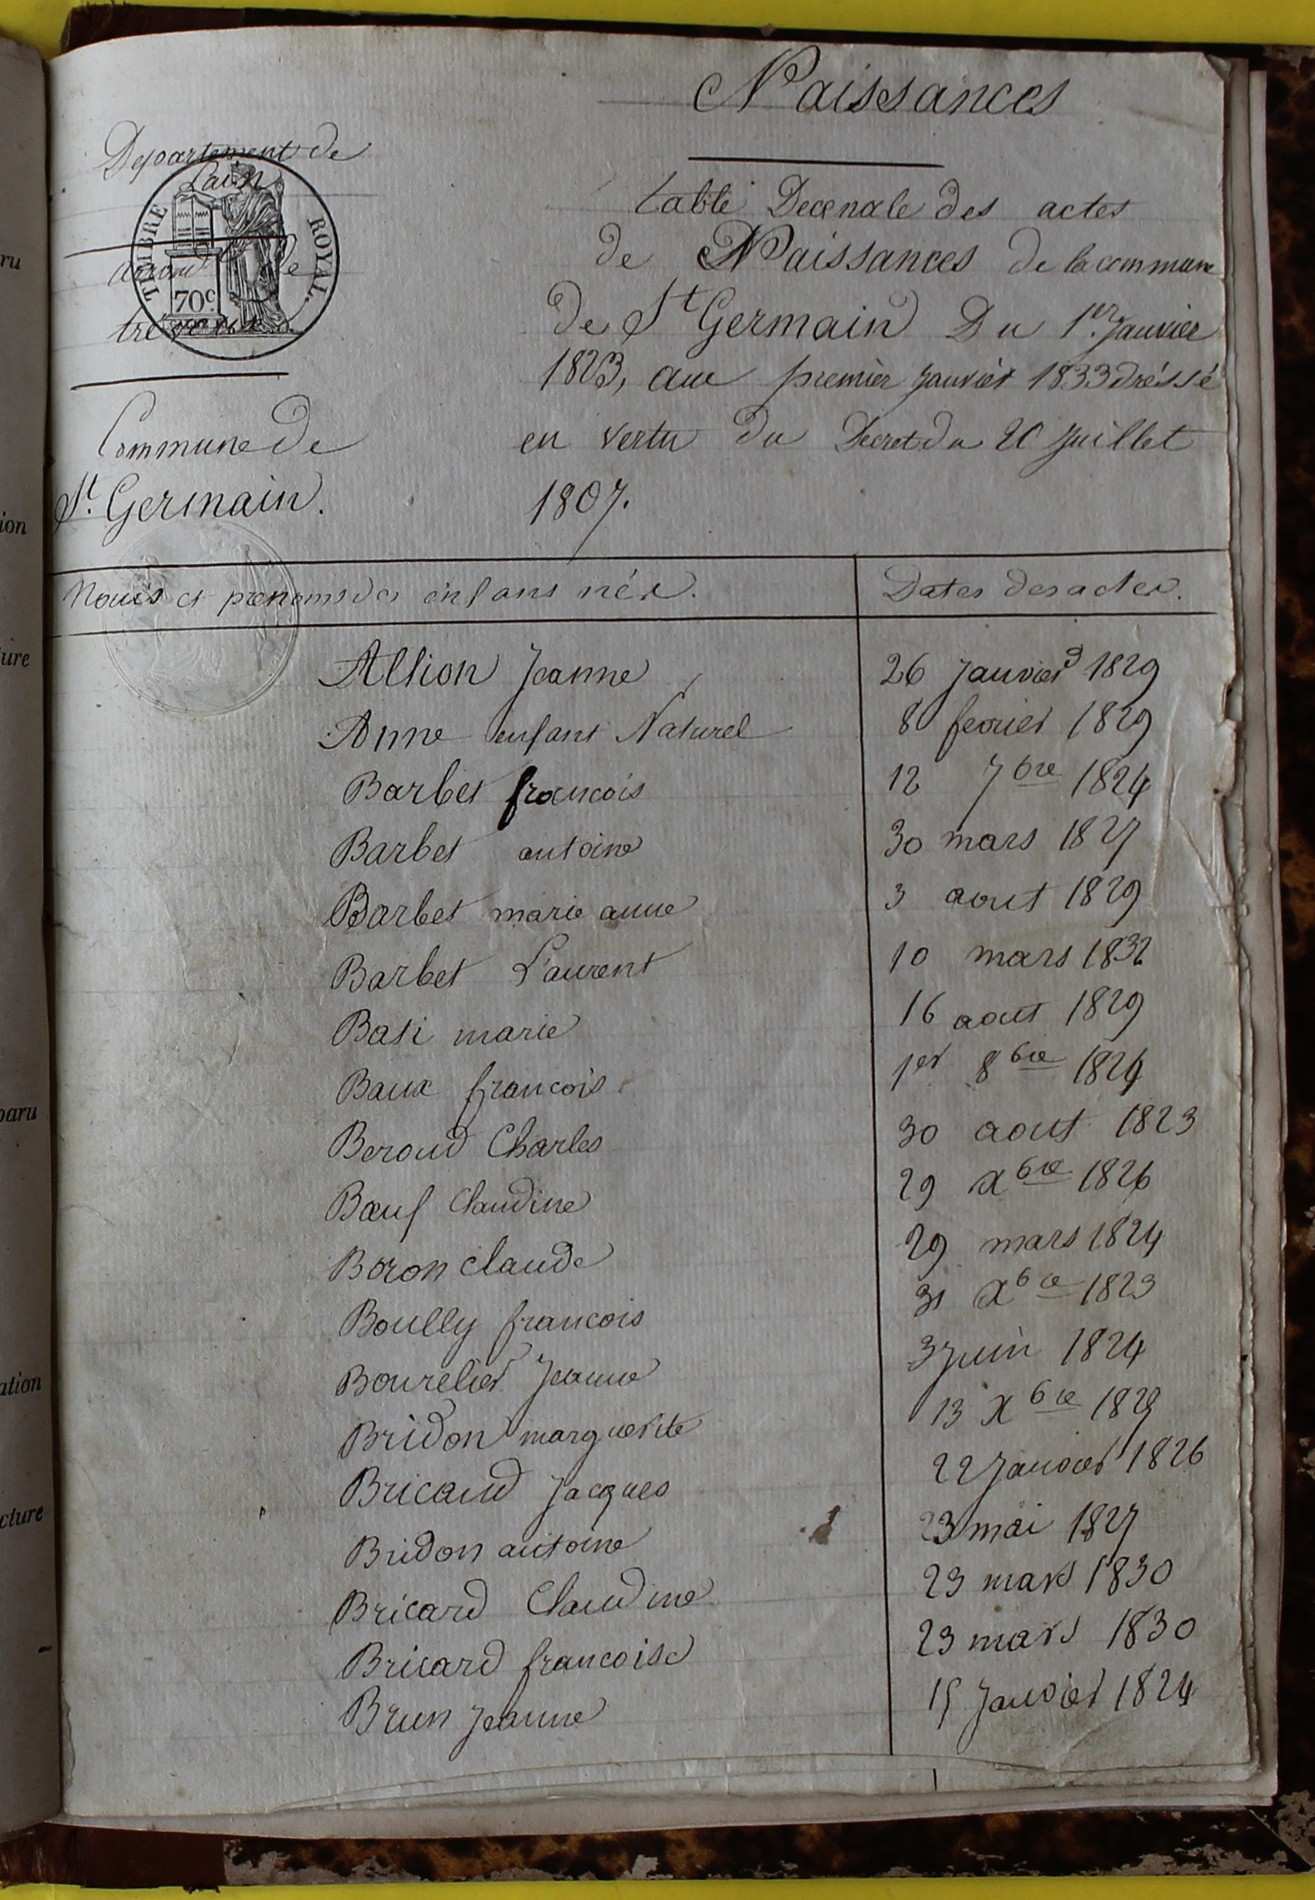 Naissances
Departement de
L'ain
arrond.t de
trevoux
TIMBRE ROYAL
70c
Commune de
St. Germain.
table Decenale des actes
de Naissances de la commune
de St Germain Du 1er. Janvier
1823, aux premier Janvier 1833 dréssé
en vertu du Decret du 20 Juillet
1807.
Noms et prenoms des énfans nés.
Dates des actes.
Allion Jeanne 26 Janvier 1829
Anne enfant Naturel 8 fevrier 1829
Barbet francois 12 7bre 1824
Barbet antoine 30 mars 1827
Barbet marie anne 3 aout 1829
Barbet Laurent 10 mars 1832
Basi marie 16 aout 1829
Baux francois 1er 8bre 1824
Beroud Charles 30 aout 1823
Bœuf Claudine 29 Xbre 1826
Boron Claude 29 mars 1824
Boully francois 31 Xbre 1823
Bourelier Jeanne 3 Juin 1824
Bridon marguerite 13 Xbre 1829
Bricaud Jacques 22 Janvier 1826
Bridon antoine 23 mai 1827
Bricard Claudine 23 mars 1830
Bricard francoise 23 mars 1830
Brun Jeanne 15 Janvier 1824
ru
ion
ure
paru
ation
cture